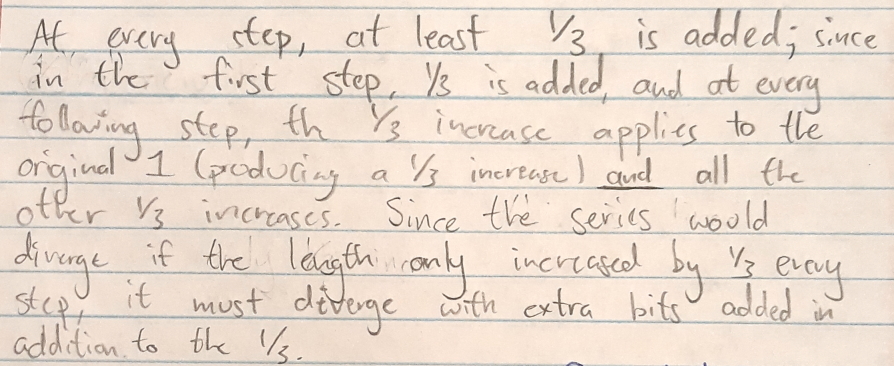 At every step, at least 1/3 is added; since
in the first step, 1/3 is added, and at every
following step, th 1/3 increase applies to the
original 1 (producing a 1/3 increase) and all the
other 1/3 increases. Since the series would
diverge if the length only increased by 1/3 every
step, it must diverge with extra bits added in
addition to the 1/3.